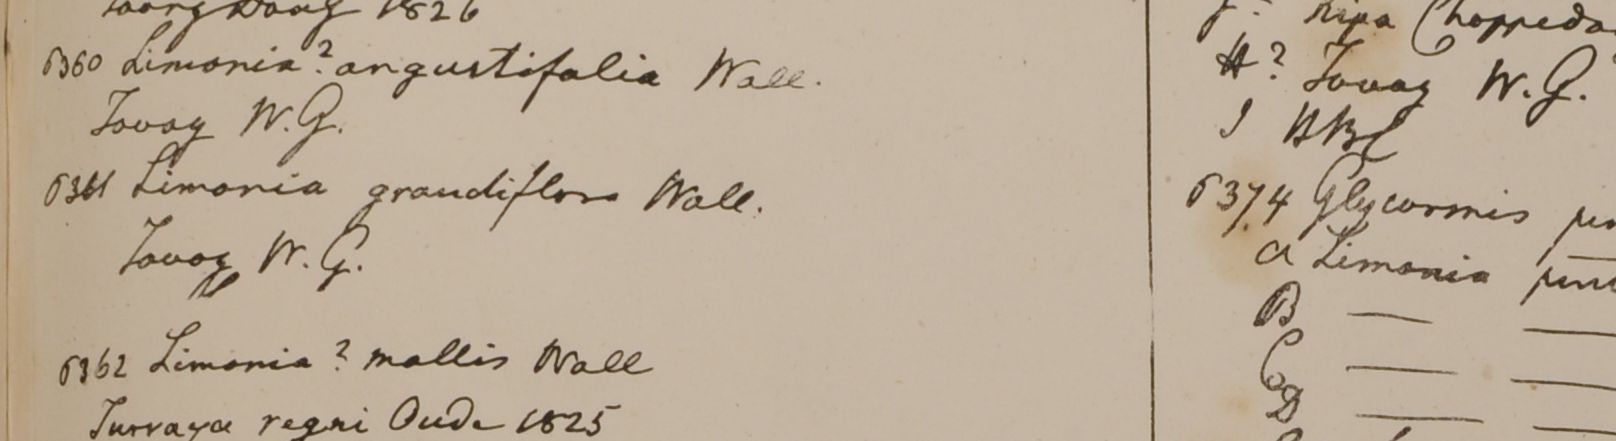 Toong Doong 1826
6360 Limonia? angustifolia Wall.
Tavoy W.G.
6361 Limonia grandiflora Wall.
Tavoy W.G.
6362 Limonia? mollis Wall
Turraya regni Oude 1825
Ripa Choppedon
H? Tavoy W.G.
I HBC
6374 Glycosmis
a Limonia
B —— ——
C —— ——
D —— ——